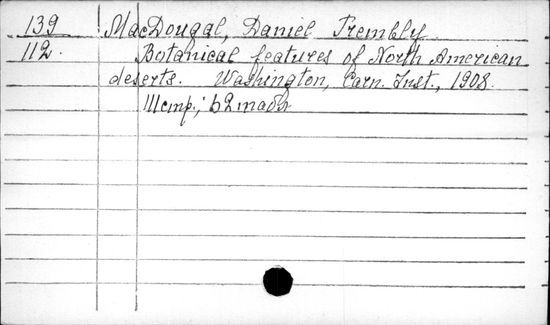 139 MacDougal, Daniel Trembly
112. Botanical features of North American
deserts. Washington, Carn. Inst., 1908.
111 стр.; 62